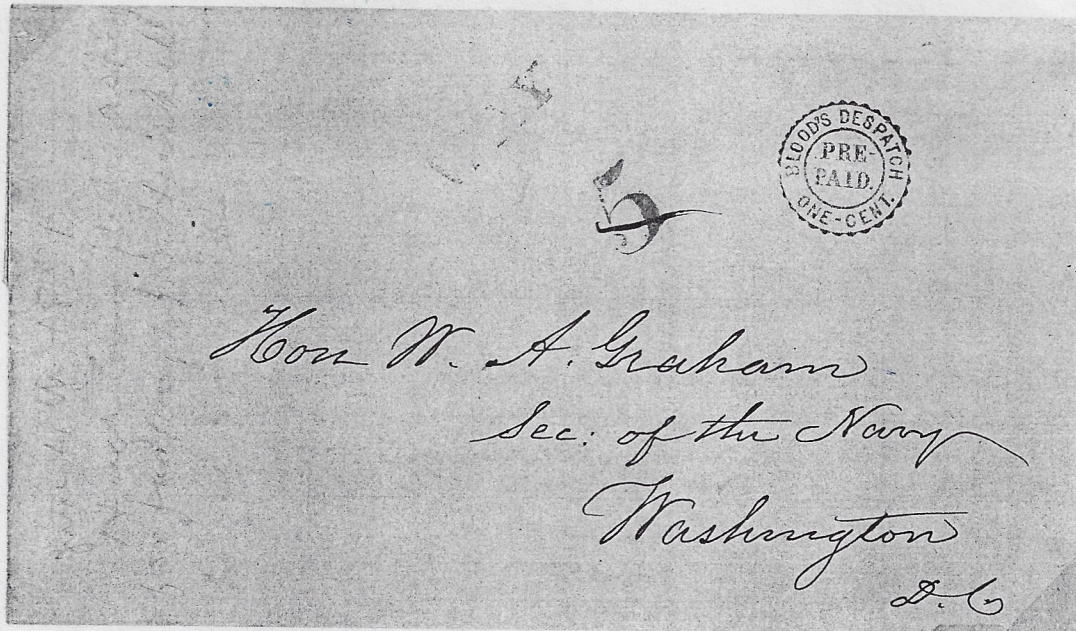 BLOOD'S DESPATCH
PRE-
PAID.
ONE-CENT.
5
Hon W. A. Graham
Sec: of the Navy
Washington
D. C